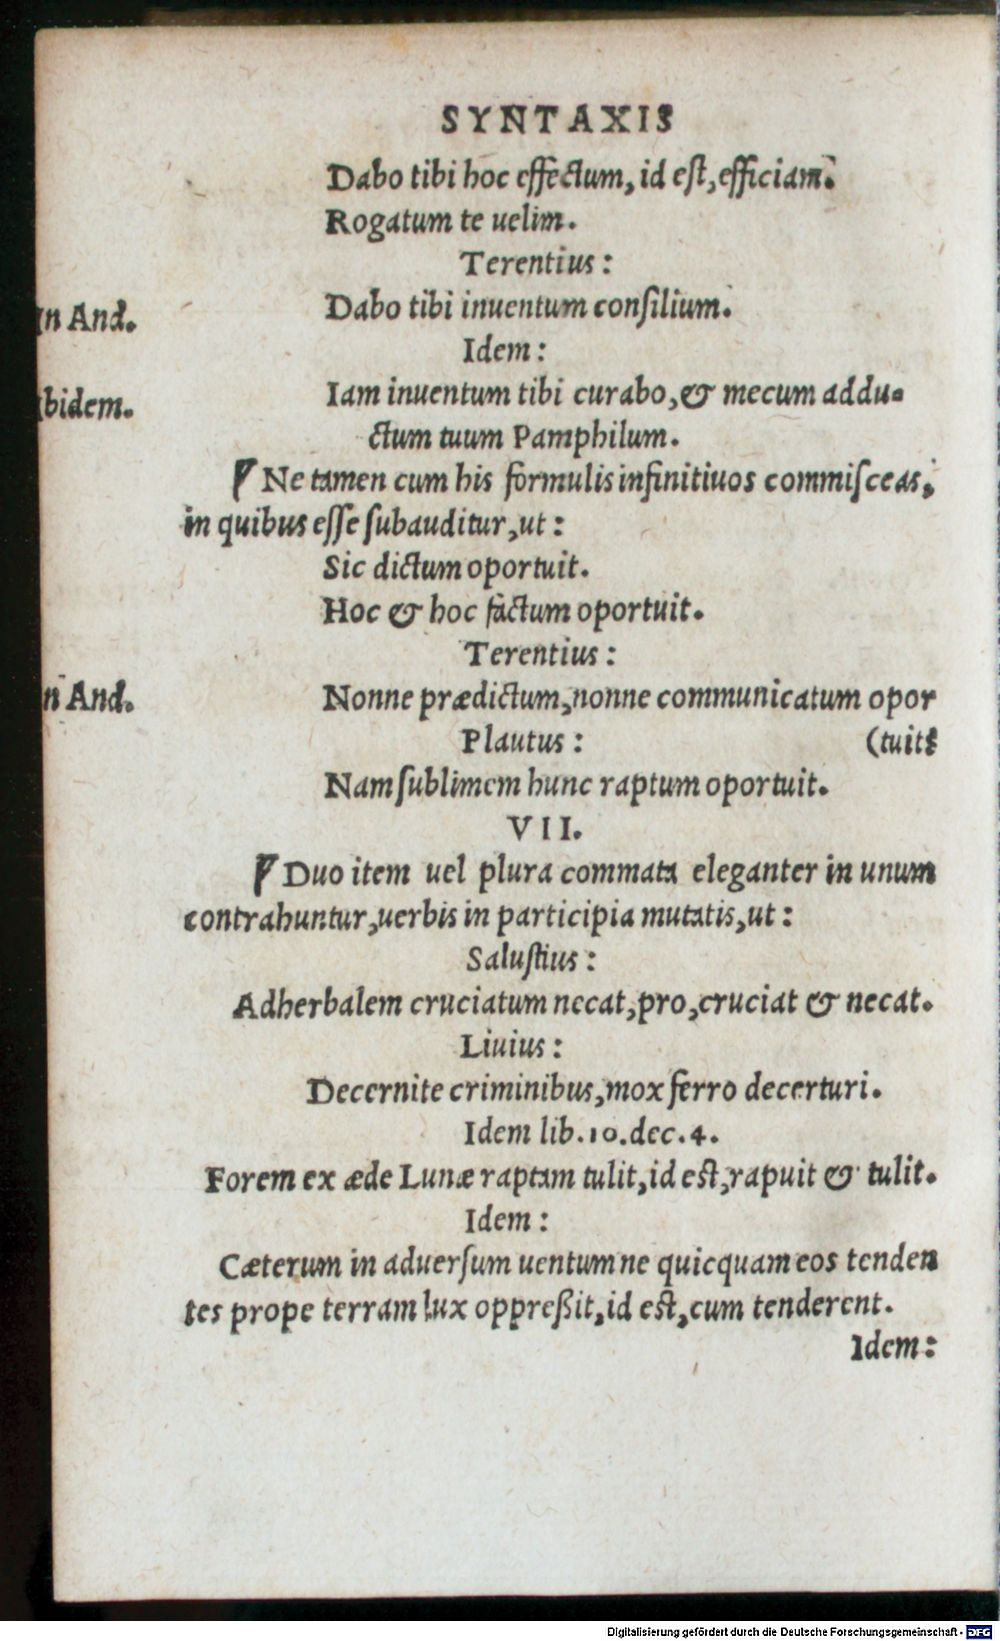 SYNTAXIS
Dabo tibi hoc effectum, id est, efficiam.
Rogatum te uelim.
Terentius:
In And. Dabo tibi inuentum consilium.
Idem:
Ibidem. Iam inuentum tibi curabo, & mecum addu-
ctum tuum Pamphilum.
Ne tamen cum his formulis infinitiuos commisceas,
in quibus esse subauditur, ut:
Sic dictum oportuit.
Hoc & hoc factum oportuit.
Terentius:
In And. Nonne prædictum, nonne communicatum opor
Plautus: (tuit?
Nam sublimem hunc raptum oportuit.
VII.
Duo item uel plura commata eleganter in unum
contrahuntur, uerbis in participia mutatis, ut:
Salustius:
Adherbalem cruciatum necat, pro, cruciat & necat.
Liuius:
Decernite criminibus, mox ferro decerturi.
Idem lib. 10. dec. 4.
Forem ex æde Lunæ raptam tulit, id est, rapuit & tulit.
Idem:
Cæterum in aduersum uentum ne quicquam eos tenden
tes prope terram lux oppreßit, id est, cum tenderent.
Idem:
Digitalisierung gefördert durch die Deutsche Forschungsgemeinschaft - DFG